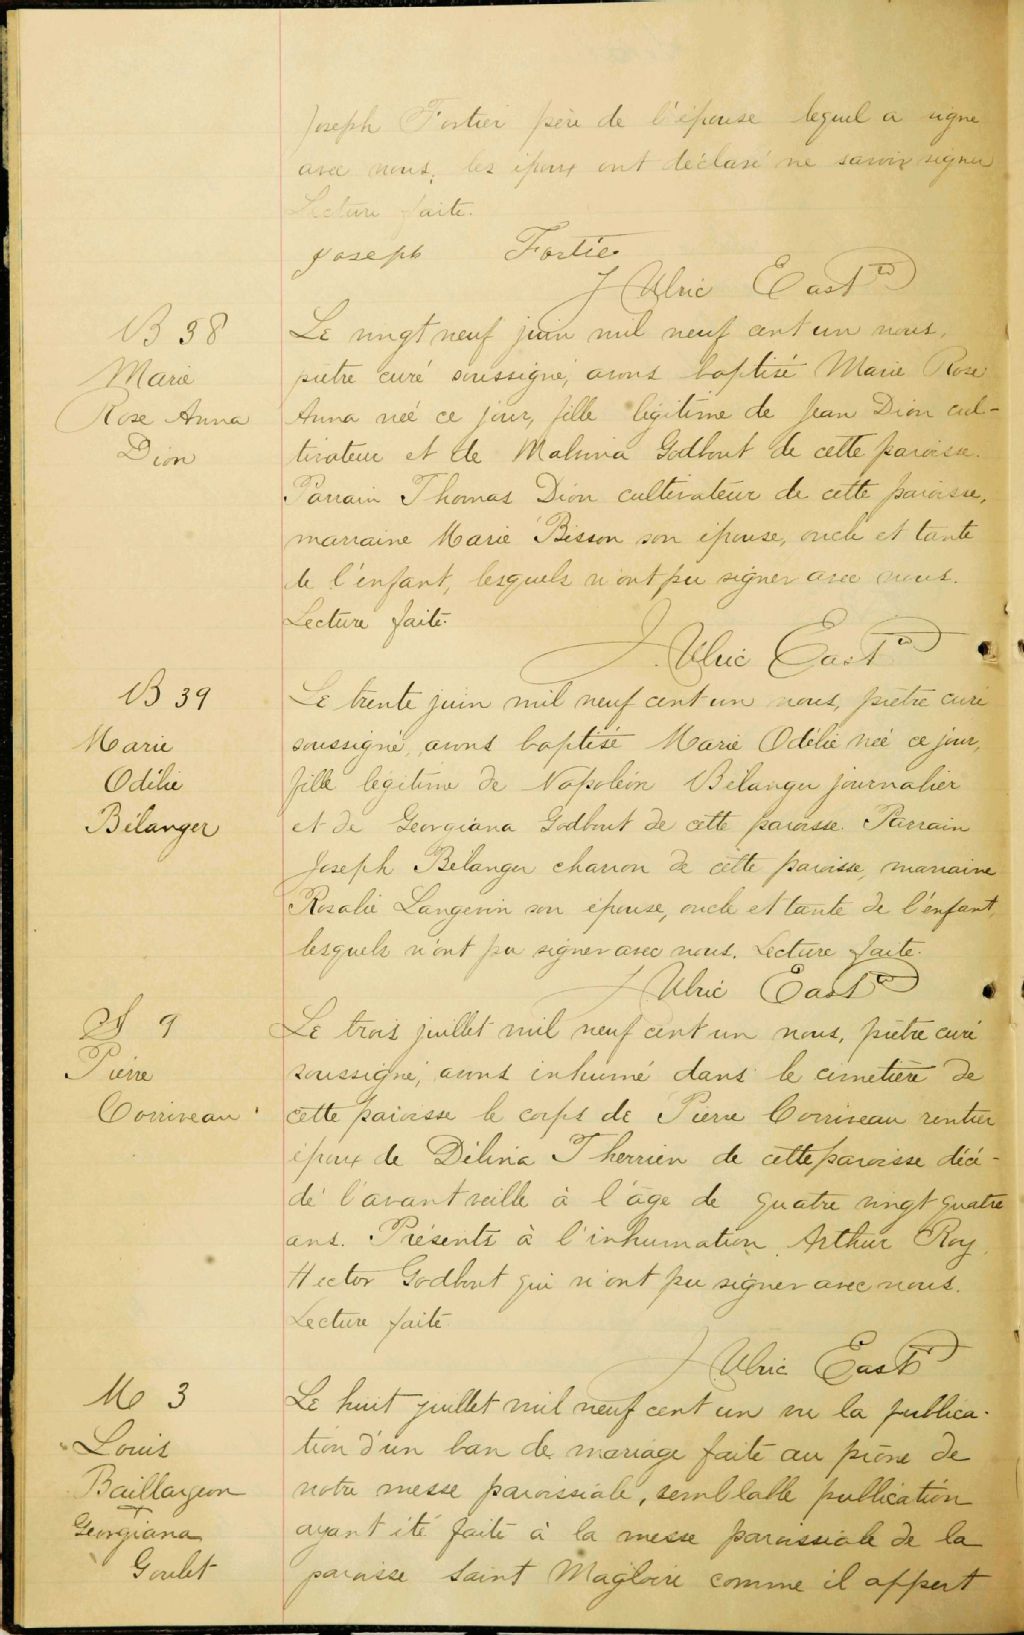 Joseph Fortier père de l'épouse lequel a signé
avec nous, les époux ont déclaré ne savoir signer
Lecture faite.
Joseph Fortier
J Ulric East Ptre
B 38
Marie
Rose Anna
Dion
Le vingt neuf juin mil neuf cent un nous,
prêtre curé soussigné, avons baptisé Marie Rose
Anna née ce jour, fille légitime de Jean Dion cul-
tivateur et de Malvina Godbout de cette paroisse.
Parrain Thomas Dion cultivateur de cette paroisse,
marraine Marie Bisson son épouse, oncle et tante
de l'enfant, lesquels n'ont pu signer avec nous.
Lecture faite.
J. Ulric East Ptre
B 39
Marie
Odélie
Bélanger
Le trente juin mil neuf cent un nous, prêtre curé
soussigné, avons baptisé Marie Odélie née ce jour,
fille légitime de Napoléon Bélanger journalier
et de Georgiana Godbout de cette paroisse. Parrain
Joseph Bélanger charron de cette paroisse, marraine
Rosalie Langevin son épouse, oncle et tante de l'enfant,
lesquels n'ont pu signer avec nous. Lecture faite.
J Ulric East Ptre
S 9
Pierre
Corriveau
Le trois juillet mil neuf cent un nous, prêtre curé
soussigné, avons inhumé dans le cimetière de
cette paroisse le corps de Pierre Corriveau rentier
époux de Délina Therrien de cette paroisse décé-
dé l'avant veille à l'âge de quatre vingt quatre
ans. Présents à l'inhumation Arthur Roy,
Hector Godbout qui n'ont pu signer avec nous.
Lecture faite
J Ulric East Ptre
M 3
Louis
Baillargeon
+
Georgiana
Goulet
Le huit juillet mil neuf cent un vu la publica-
tion d'un ban de mariage faite au prône de
notre messe paroissiale, semblable publication
ayant été faite à la messe paroissiale de la
paroisse Saint Magloire comme il appert